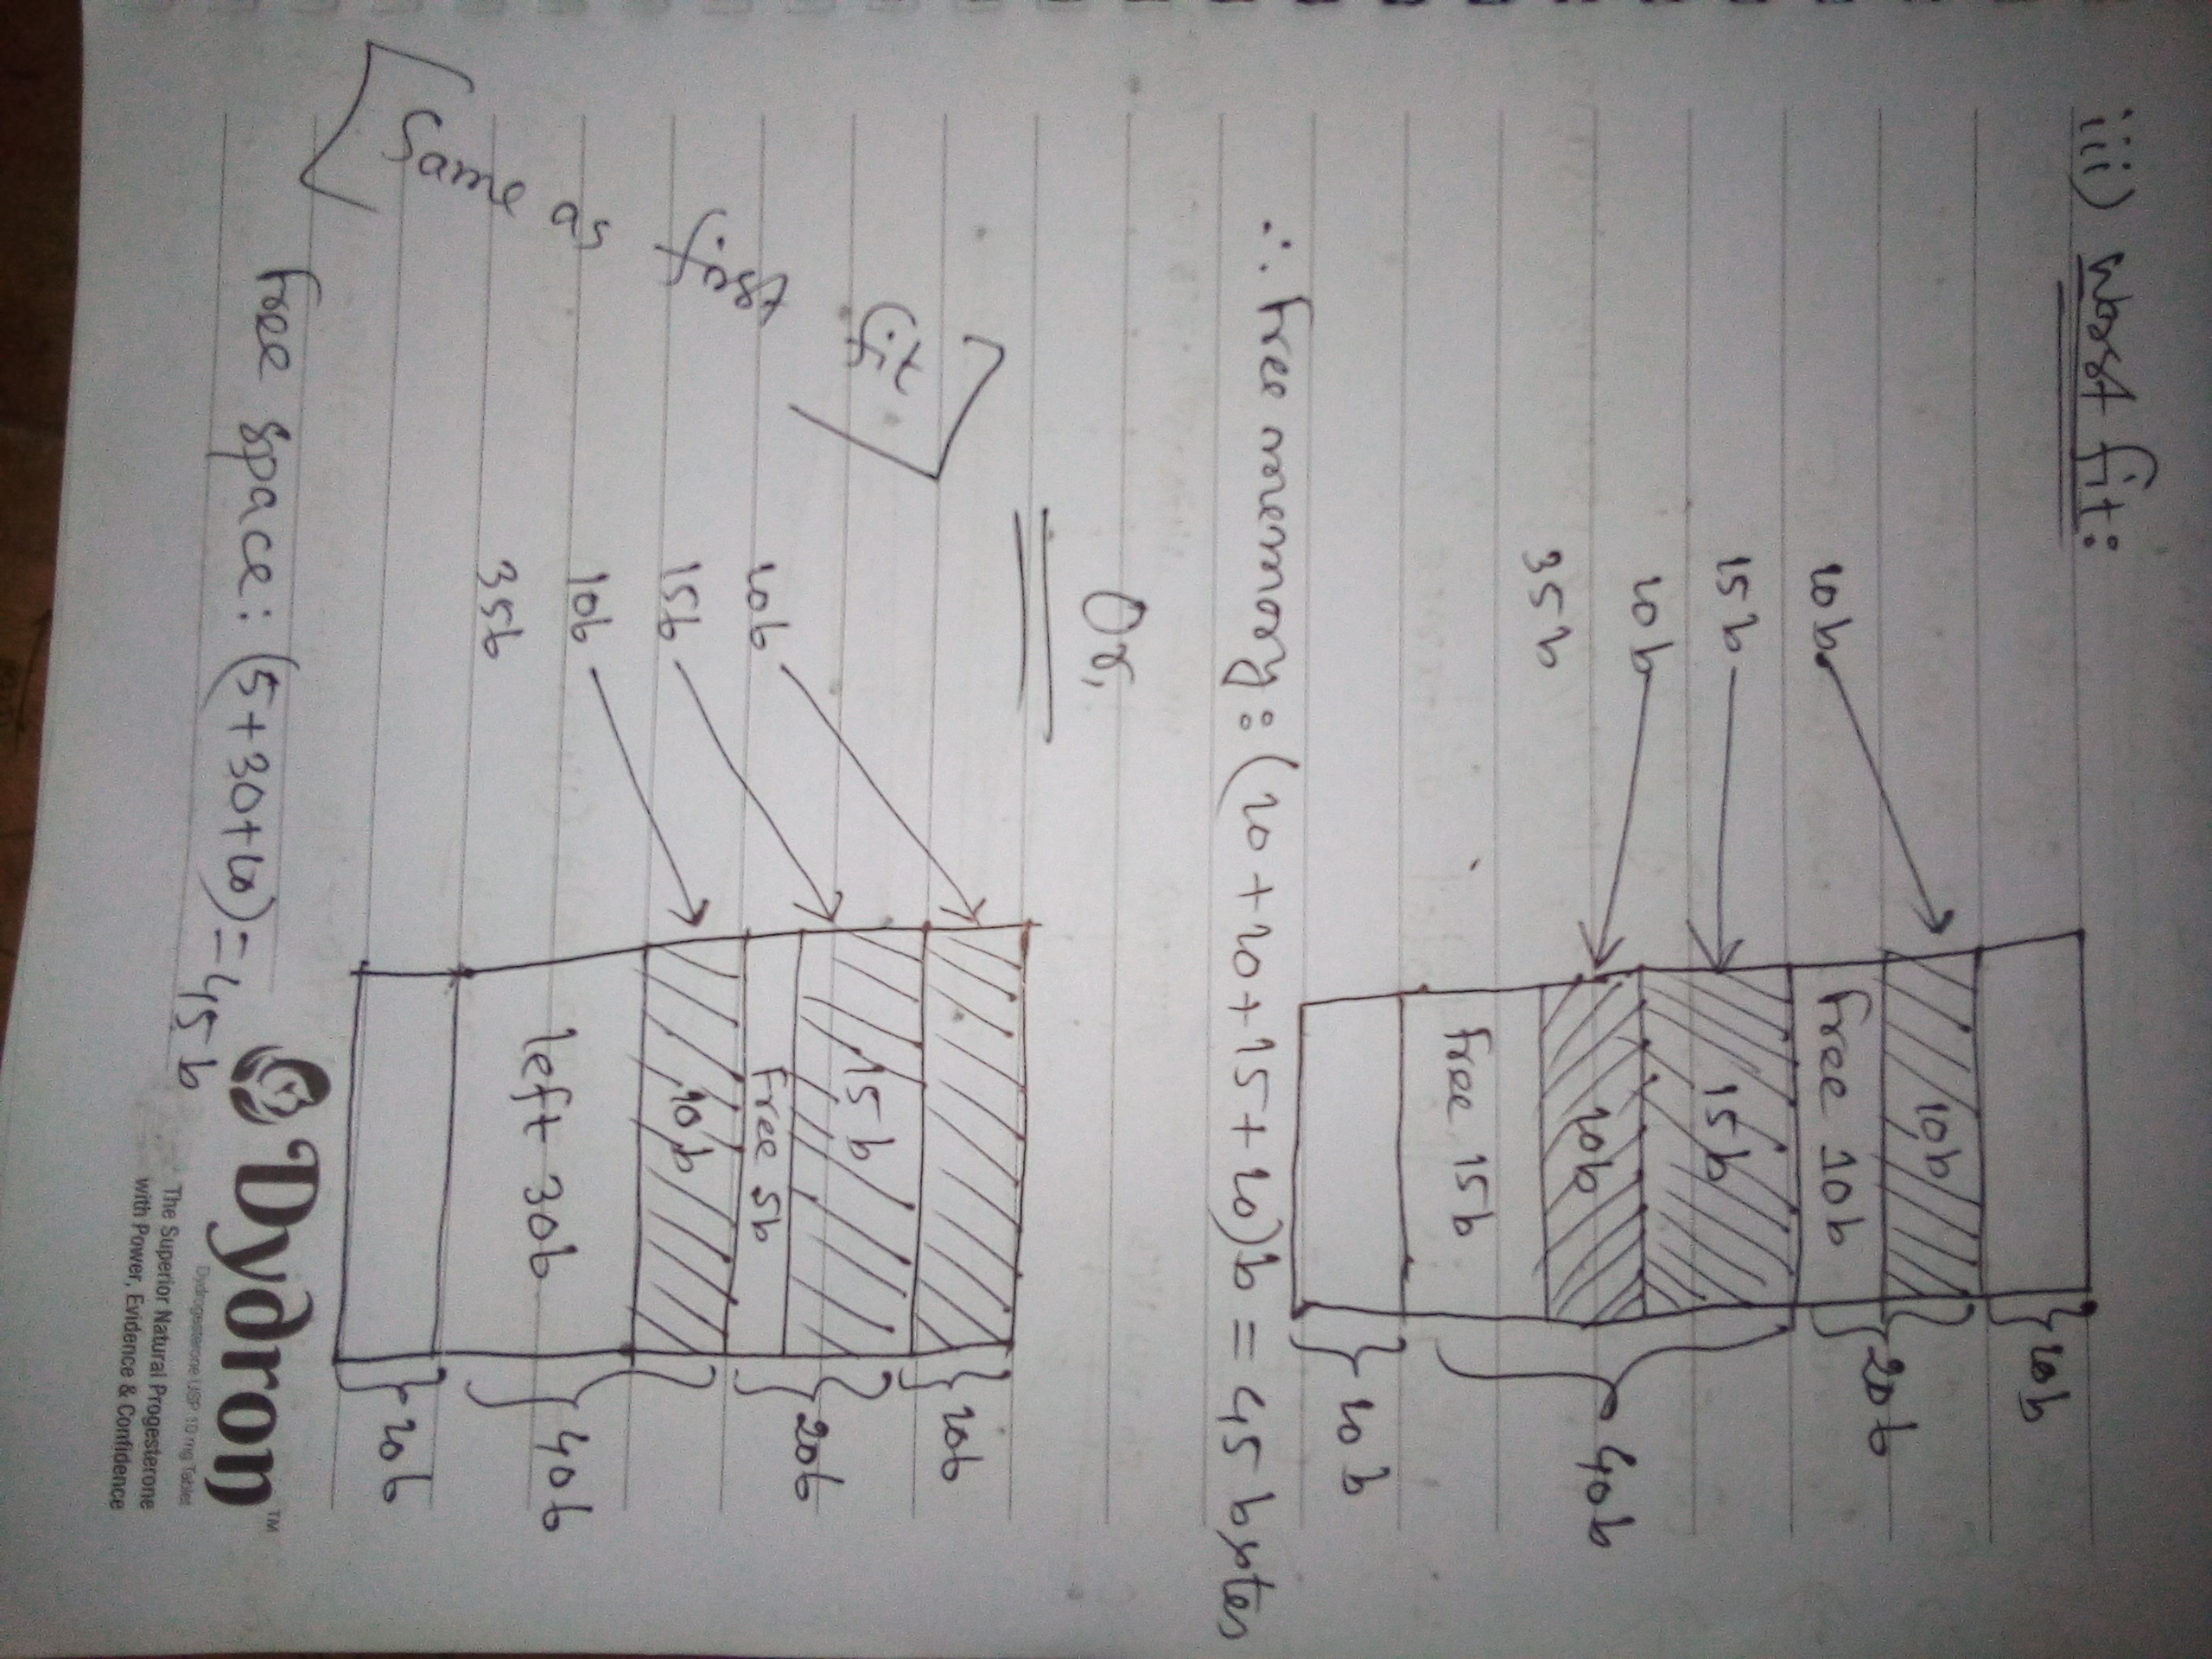 iii) worst fit:
10b
10b
20b
10b
Free 10b
15b
15b
10b
10b
40b
35b
Free 15b
10b
∴ Free memory: (10+10+15+10)b = 45 bytes
Or,
10b
15b
20b
Free 5b
10b
15b
10b
10b
left 30b
40b
35b
10b
Same as first fit
Free space: (5+30+10)=45b
Dydron™
Dydrogesterone USP 10 mg Tablet
The Superior Natural Progesterone
with Power, Evidence & Confidence